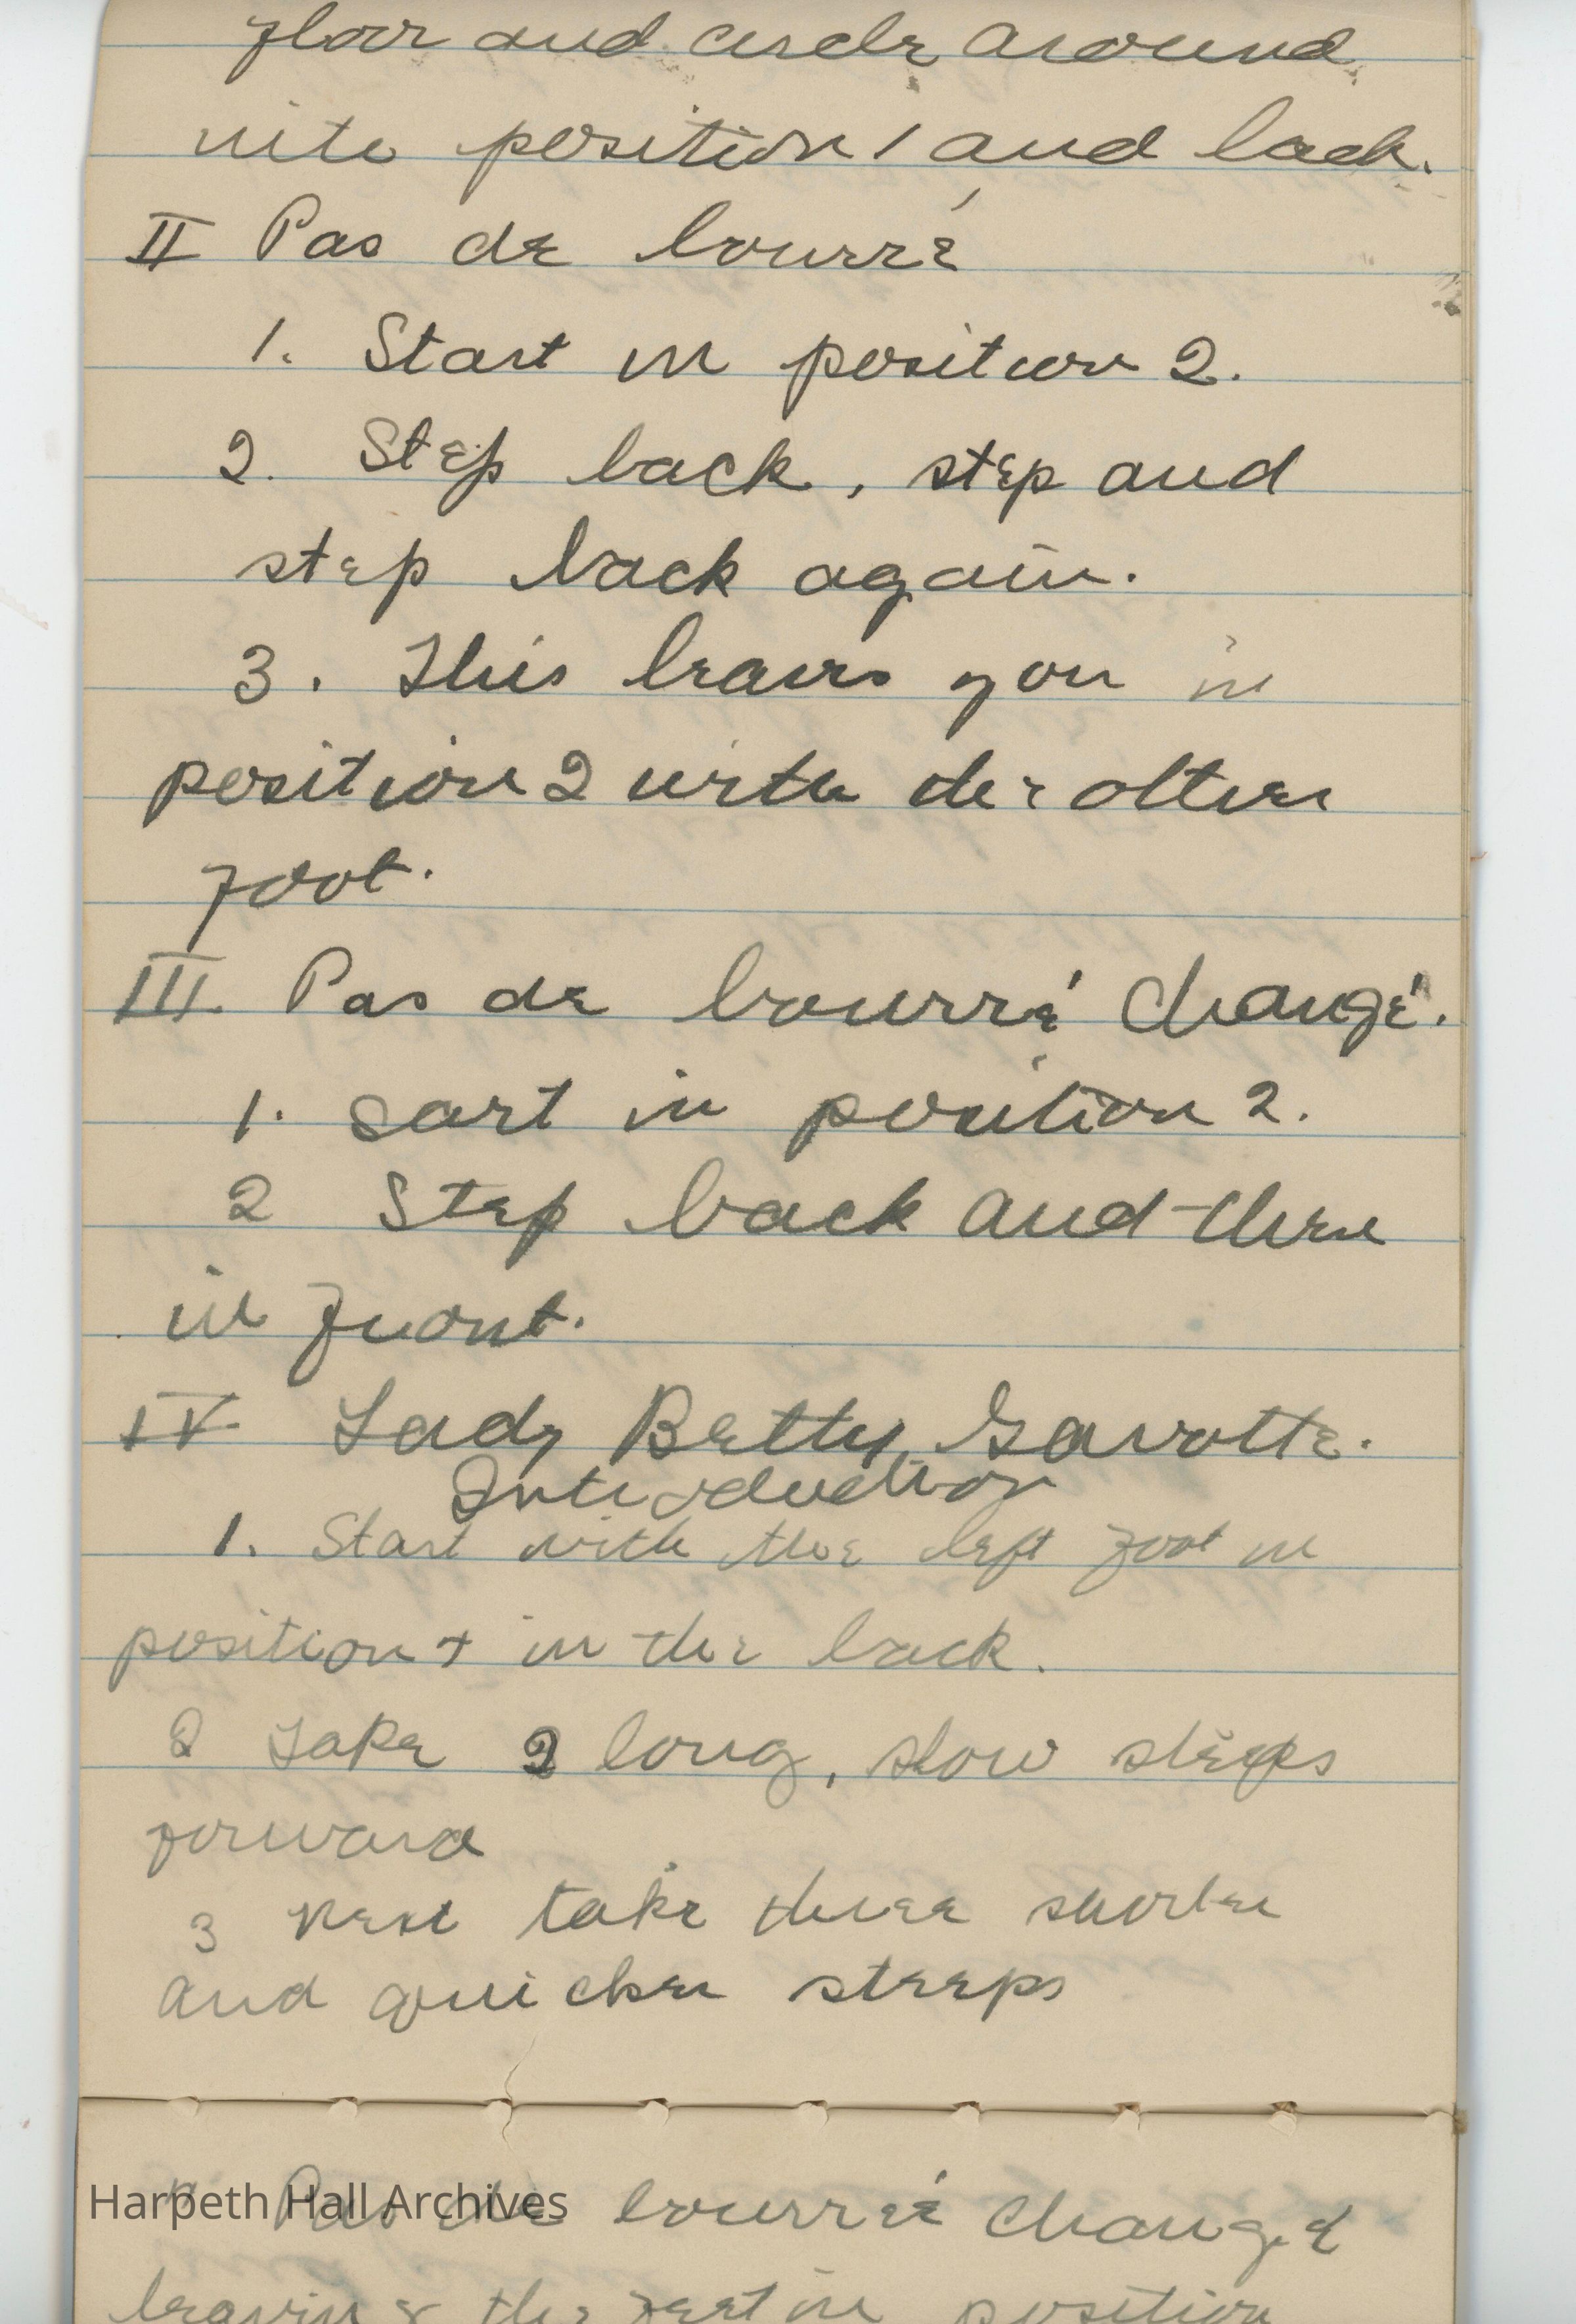 floor and circle around
into position 1 and back.
II Pas de bourré
1. Start in position 2.
2. Step back, step and
step back again.
3. This leaves you in
position 2 with the other
foot.
III. Pas de bourré changé.
1. Sart in position 2.
2 Step back and then
in front.
IV Lady Betty Gavotte.
Introduction
1. Start with the left foot in
position 4 in the back.
2 Take 2 long, slow steps
forward
3 Next take three shorter
and quicker steeps
Pas de bourré changé
leaving the feet in position
Harpeth Hall Archives